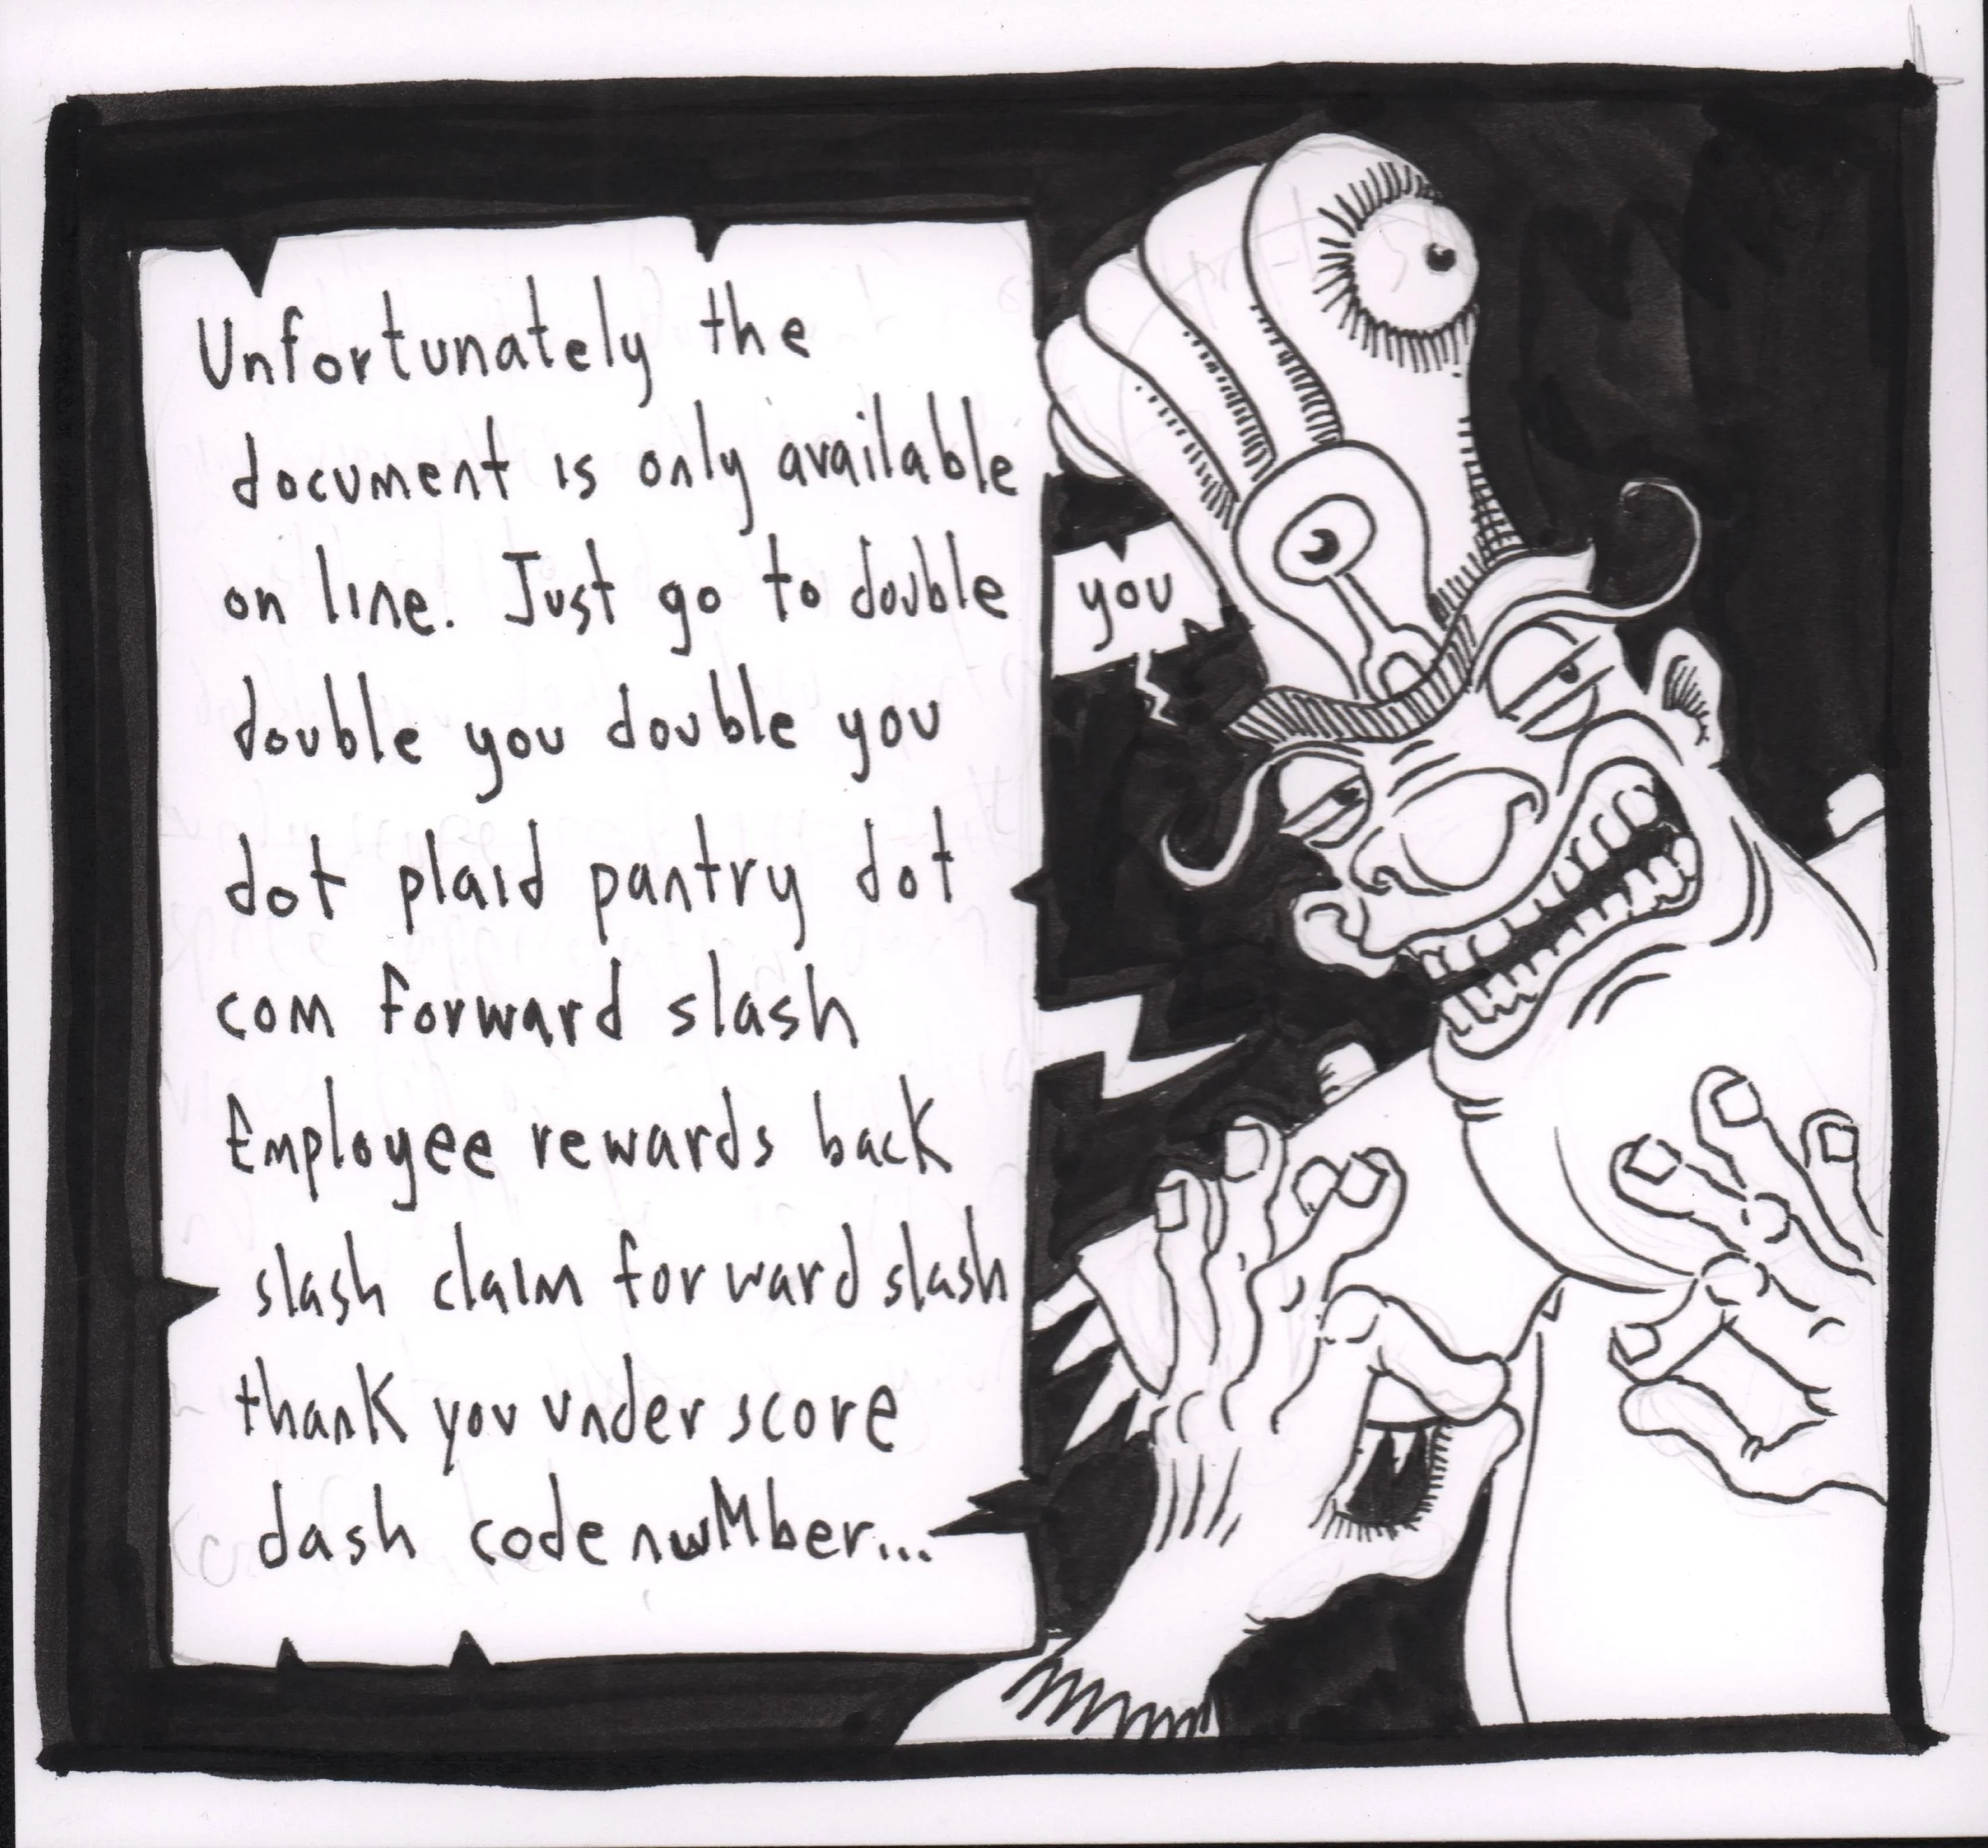 Unfortunately the
document is only available
on line. Just go to double you
double you double you
dot plaid pantry dot
com forward slash
Employee rewards back
slash claim forward slash
thank you under score
dash code nuMber...